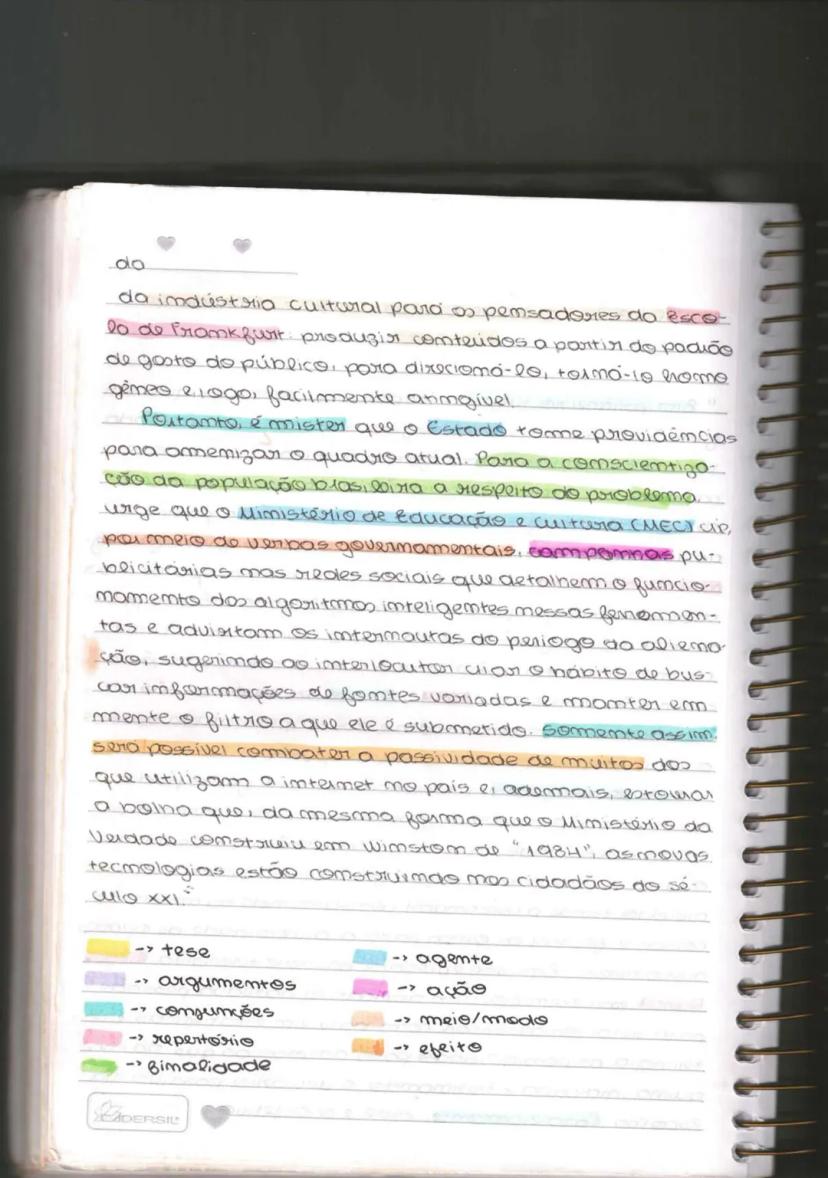 do
da indústria cultural para os pensadores da esco-
la de Frankfurt: produzir conteúdos a partir do padrão
de gosto do público, para direcioná-lo, torná-lo homo
gêneo e logo, facilmente atingível.
Portanto, é mister que o Estado tome providências
para amenizar o quadro atual. Para a conscientiza-
ção da população brasileira a respeito do problema,
urge que o Ministério de Educação e Cultura (MEC) crie,
por meio de verbas governamentais, campanhas pu-
blicitárias nas redes sociais que detalhem o funcio-
namento dos algoritmos inteligentes nessas ferramen-
tas e advirtam os internautas do perigo da aliena-
ção, sugerindo ao interlocutor criar o hábito de bus-
car informações de fontes variadas e manter em
mente o filtro a que ele é submetido. Somente assim,
será possível combater a passividade de muitos dos
que utilizam a internet no país e, ademais, estourar
a bolha que, da mesma forma que o Ministério da
Verdade construiu em Winston de "1984", as novas
tecnologias estão construindo nos cidadãos do sé-
culo XXI."
-> tese
-> agente
-> argumentos
-> ação
-> conjunções
-> meio/modo
-> repertório
-> efeito
-> finalidade
CADERSIL